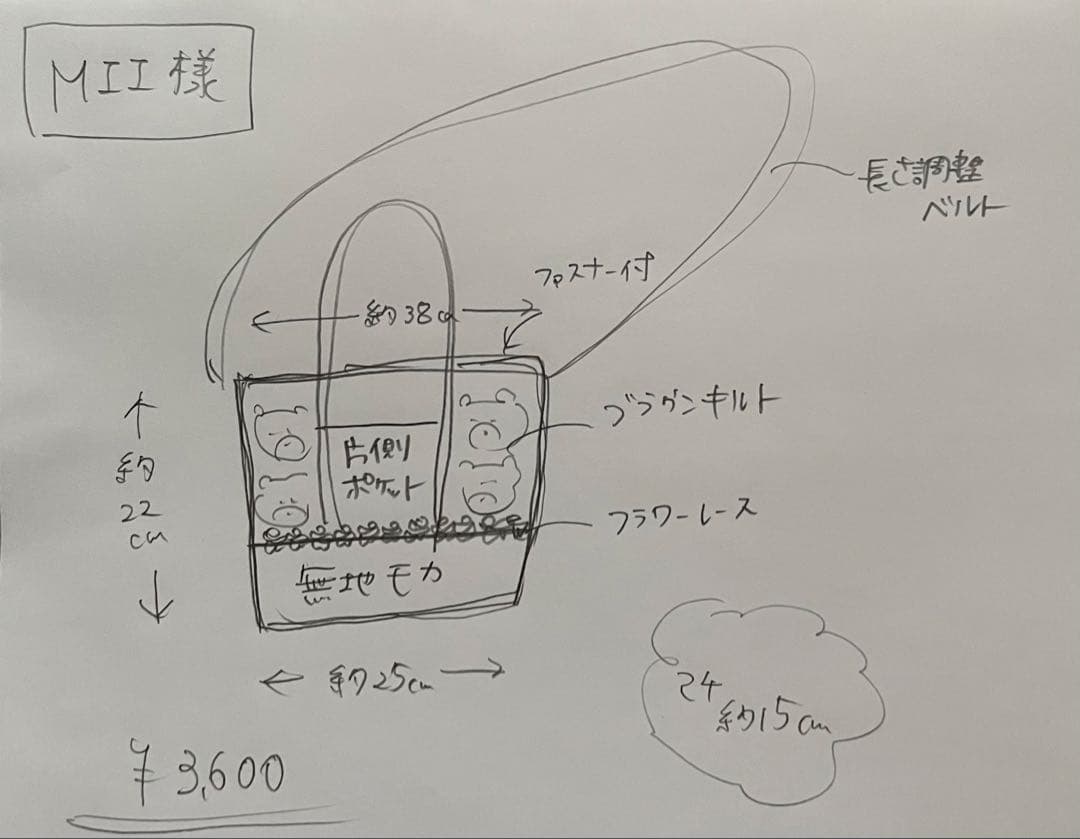 MII様
長さ調整
ベルト
ファスナー付
約38cm
ブラウンキルト
片側
ポケット
約
22
cm
フラワーレース
無地モカ
約25cm
マチ
約15cm
¥3,600